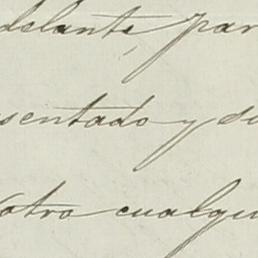 delante, par
sentado y di
otro cualqui